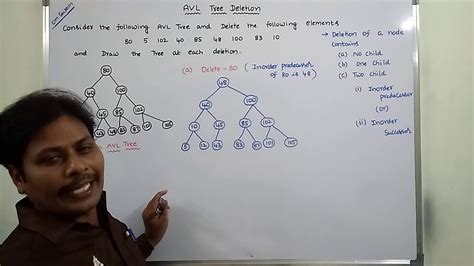 AVL Tree Deletion
Consider the following AVL Tree and Delete the following elements
80 5 102 40 85 48 100 83 10
and Draw the Tree at each deletion.
80
40 100
45 85 102
43 48 83 87 105
AVL Tree
(a) Delete - 80 ( Inorder predecessor
of 80 is 48)
48
40 100
10 45 85 102
5 12 43 83 87 101 105
→ Deletion of a node
contains
(a) No Child
(b) One Child
(c) Two Child
(i) Inorder
predecessor
(or)
(ii) Inorder
Successor